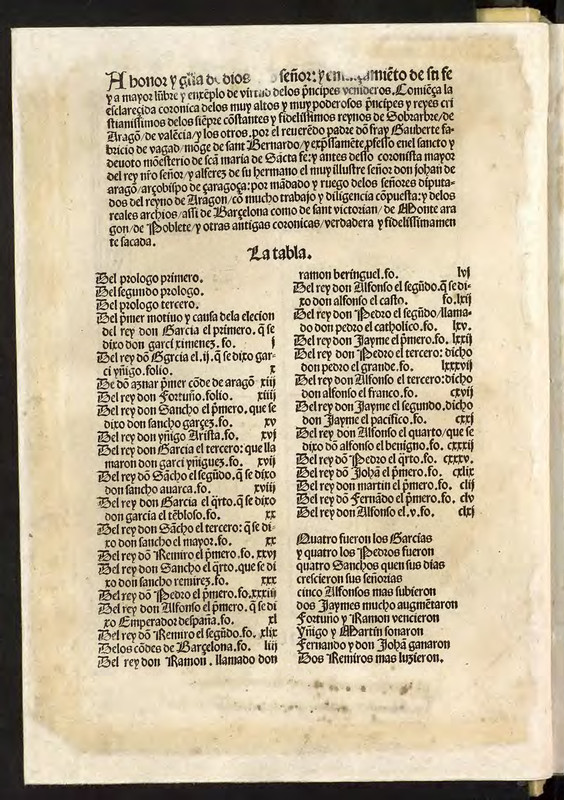 A honor y glĩa de dios señor: y en sçimiẽto de su fe
y a mayor lũbre y enxẽplo de virtud delos p̃ncipes venideros. Comiẽça la
esclareçida coronica delos muy altos y muy poderosos p̃ncipes y reyes cri
stianissimos delos siẽpre cõstantes y fidelissimos reynos de Sobrarbre/de
Aragõ/de valẽcia/y los otros. por el reuerẽdo padre dõ fray Gauberte fa-
bricio de vagad/mõge de sant Bernardo/y exp̃ssamẽte p̱fesso enel sancto y
deuoto mõesterio de sc̃a maria de Sãcta fe: y antes desso coronista mayor
del rey ñro señor/y alferez de su hermano el muy illustre señor don johan de
aragõ/arçobispo de çaragoça: por mãdado y ruego delos señores diputa-
dos del reyno de Aragon/cõ mucho trabajo y diligencia cõpuesta: y delos
reales archiuos/assi de Barçelona como de sant victorian/de Monte ara
gon/de Poblete/y otras antigas coronicas/verdadera y fidelissimamen
te sacada.
La tabla.
Del prologo primero.
Del segundo prologo.
Del prologo tercero.
Del p̃mer motiuo y causa dela elecion
del rey don Garcia el primero. q̃ se
dixo don garci ximenez. fo. j
Del rey dõ Garcia el .ij. q̃ se dixo gar-
ci yñigo. folio. x
De dõ aznar p̃mer cõde de aragõ xiij
Del rey don Fortuño. folio. xiiij
Del rey don Sancho el p̃mero. que se
dixo don sancho garçez. fo. xv
Del rey don yñigo Arista. fo. xvj
Del rey don Garcia el tercero: que lla
maron don garci yñiguez. fo. xvij
Del rey dõ Sãcho el segũdo. q̃ se dixo
don sancho auarca. fo. xviij
Del rey don Garcia el q̃rto. q̃ se dixo
don garcia el tẽbloso. fo. xx
Del rey don Sãcho el tercero: q̃ se di-
xo don sancho el mayor. fo. xx
Del rey dõ Remiro el p̃mero. fo. xxvj
Del rey don Sancho el q̃rto. que se di
xo don sancho remirez. fo. xxx
Del rey dõ Pedro el p̃mero. fo. xxxiij
Del rey don Alfonso el p̃mero. q̃ se di
xo Emperador despaña. fo. xl
Del rey dõ Remiro el segũdo. fo. xlix
Delos cõdes de Barçelona. fo. liij
Del rey don Ramon. llamado don
ramon beringuel. fo. lvj
Del rey don Alfonso el segũdo. q̃ se di-
xo don alfonso el casto. fo. lxij
Del rey don Pedro el segũdo/llama-
do don pedro el catholico. fo. lxv.
Del rey don Jayme el p̃mero. fo. lxxij
Del rey don Pedro el tercero: dicho
don pedro el grande. fo. lxxxvij
Del rey don Alfonso el tercero: dicho
don alfonso el franco. fo. cxvij
Del rey don Jayme el segundo. dicho
don Jayme el pacifico. fo. cxxj
Del rey don Alfonso el quarto/que se
dixo dõ alfonso el benigno. fo. cxxxij
Del rey dõ Pedro el q̃rto. fo. cxxxv.
Del rey dõ Johã el p̃mero. fo. cxlix
Del rey don martin el p̃mero. fo. clij
Del rey dõ Fernãdo el p̃mero. fo. clv
Del rey don Alfonso el .v. fo. clxj
Quatro fueron los Garcias
y quatro los Pedros fueron
quatro Sanchos quen sus dias
crescieron sus señorias
cinco Alfonsos mas subieron
dos Jaymes mucho augmẽtaron
Fortuño y Ramon vencieron
Yñigo y Martin sonaron
Fernando y don Johã ganaron
Dos Remiros mas luzieron.